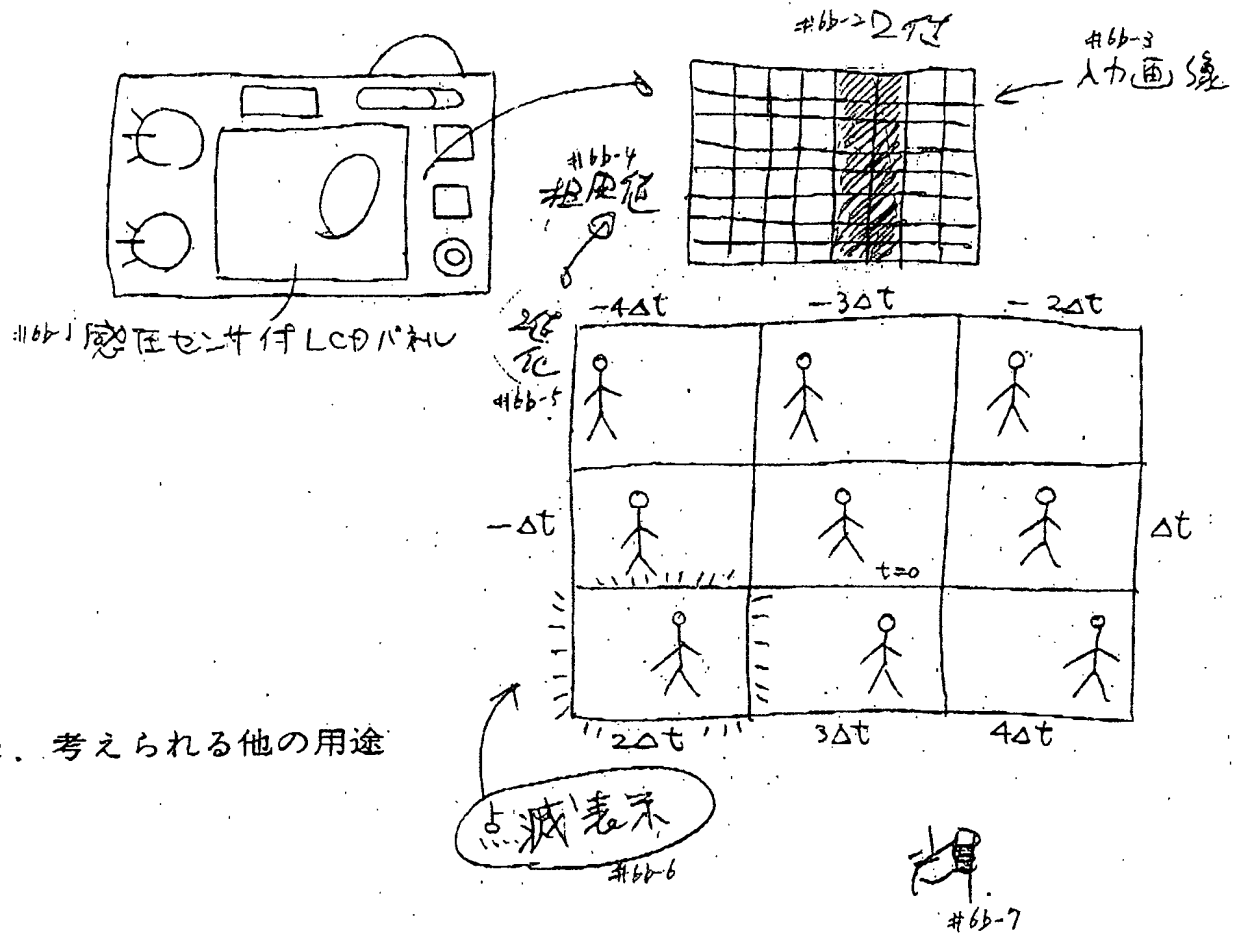 #6b-2 2値
#6b-3
入力画像
#6b-4
#6b-1 感圧センサ付LCDパネル
2値
化
#6b-5
-4Δt -3Δt -2Δt
-Δt t=0 Δt
2Δt 3Δt 4Δt
. 考えられる他の用途
点滅表示
#6b-6
#6b-7